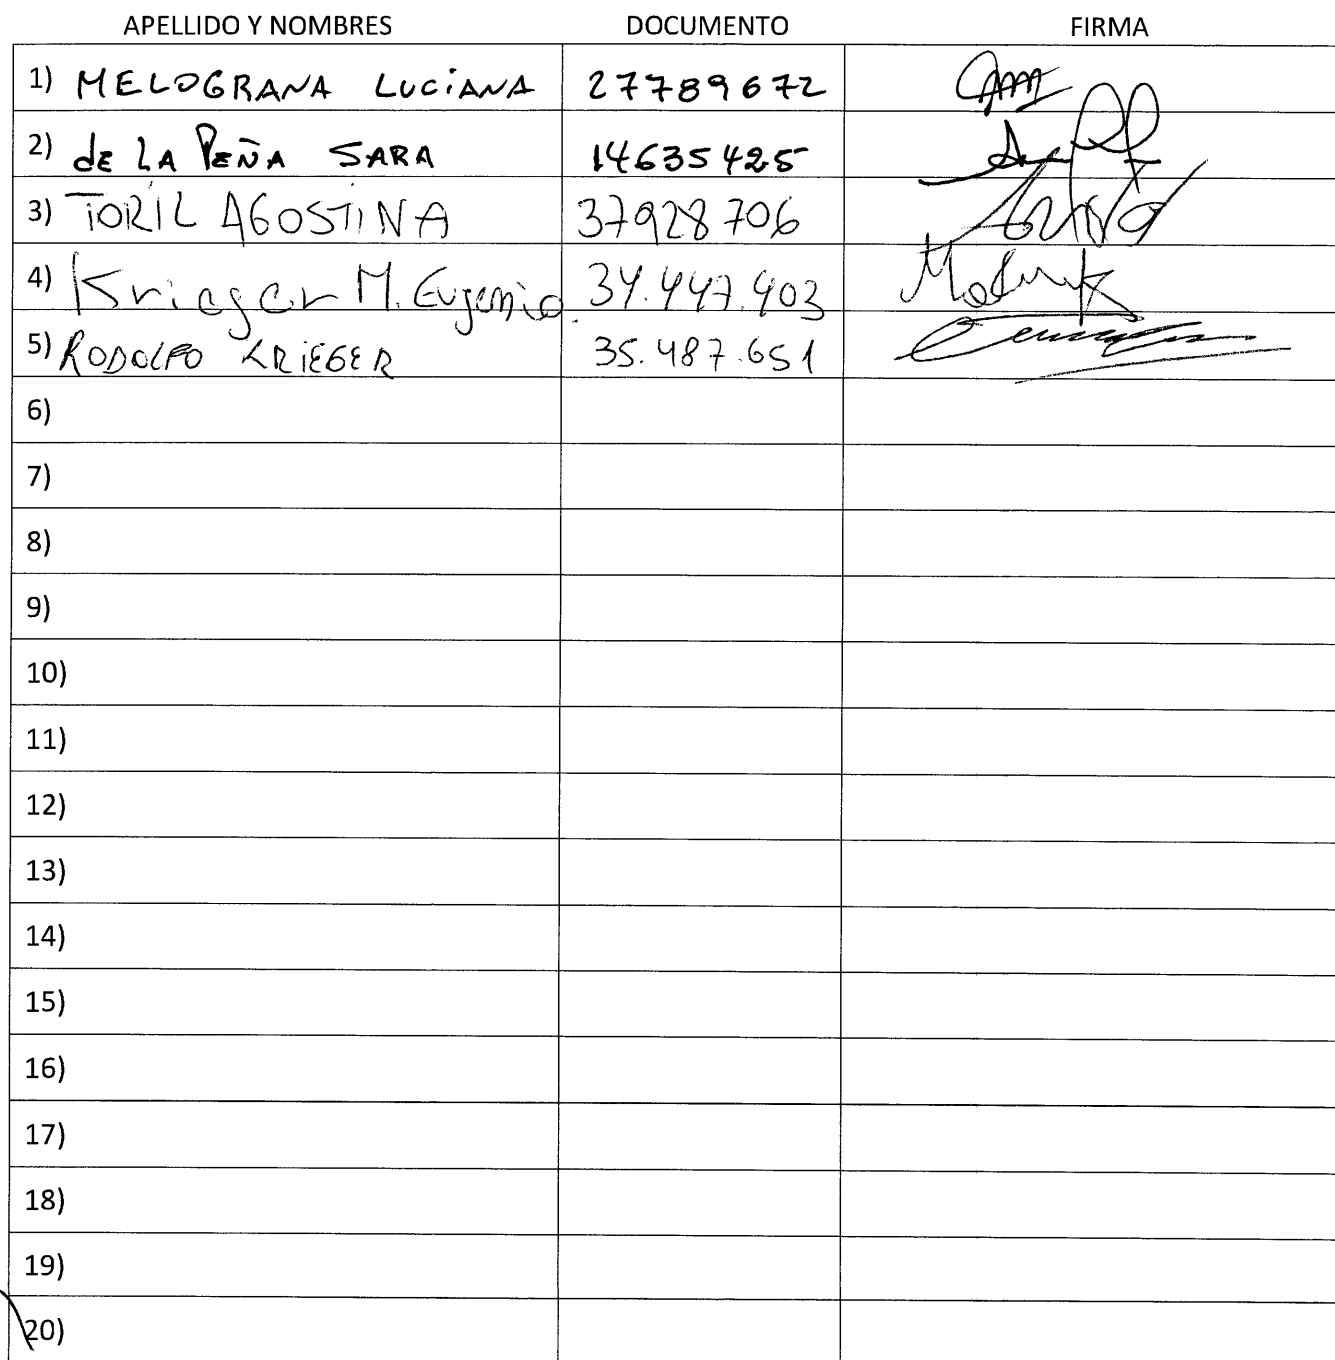 APELLIDO Y NOMBRES DOCUMENTO FIRMA
1) MELOGRANA LUCIANA 27789672
2) de LA PEÑA SARA 14635425
3) TORIL AGOSTINA 37928706
4) Krieger M. Eugenia. 34.447.403
5) RODOLFO KRIEGER 35.487.651
6)
7)
8)
9)
10)
11)
12)
13)
14)
15)
16)
17)
18)
19)
20)